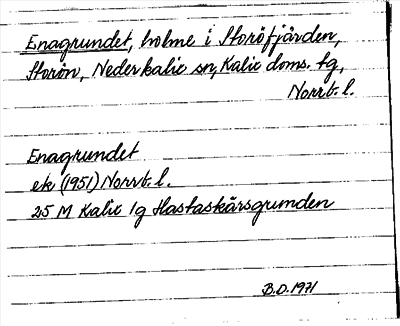 Enagrundet, holme i Storöfjärden,
Storön, Nederkalix sn, Kalix doms. tg,
Norrb. l.
Enagrundet
ek (1951) Norrb. l.
25 M Kalix 1g Hastaskärsgrunden
B.D. 1971